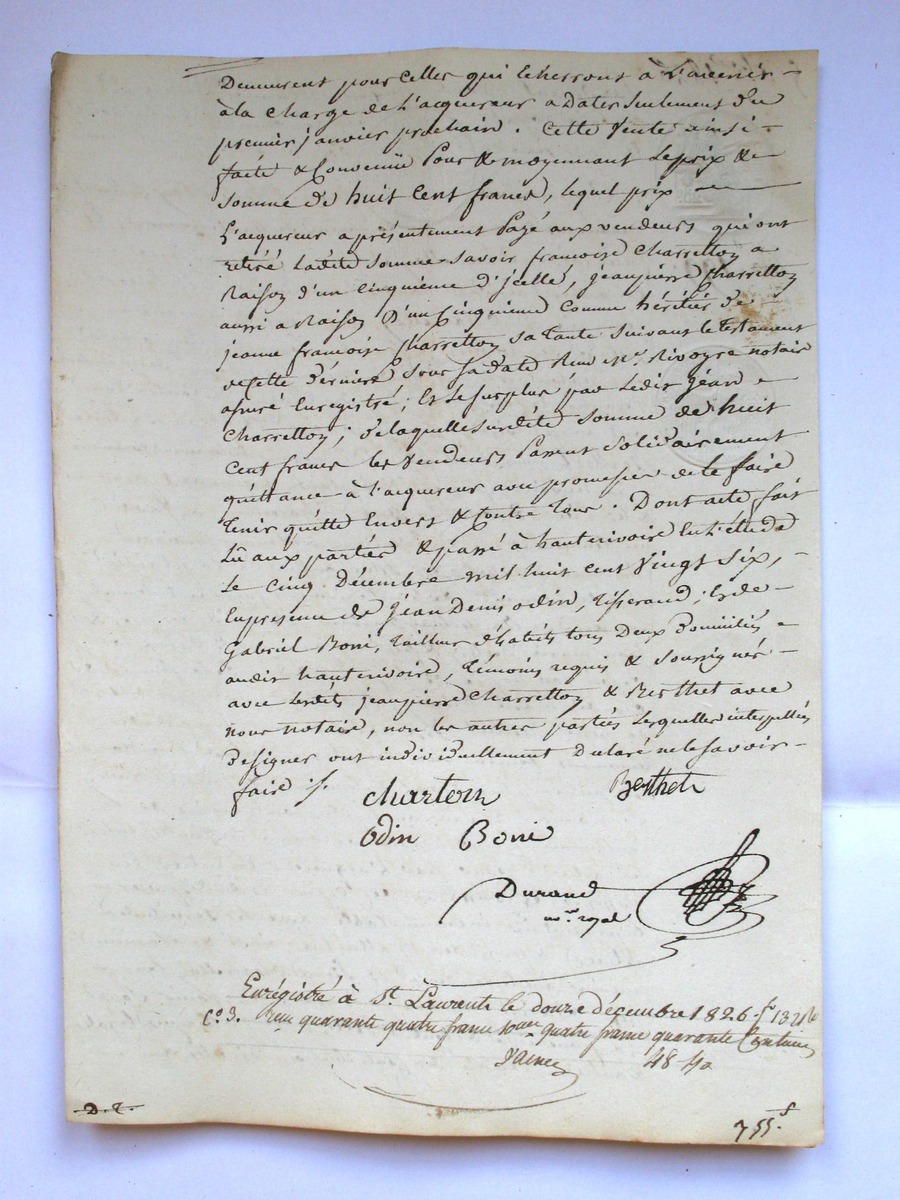 Demeurent pour celles qui écherront a L'avenir -
à la charge de L'acquereur a Dater seulement du
premier janvier prochain. Cette vente ainsi -
faite & Convenüe pour & moyennant Le prix &
somme de huit Cent francs, lequel prix
L'acquereur a présentement Payé aux vendeurs qui ont
retiré Ladite somme savoir françoise Charretton a
Raison d'un cinquieme d'jcelle, jeanpierre Charretton
aussi a Raison D'un Cinquieme comme héritier de
jeanne françoise Charretton sa tante suivant le testament
de cette derniere sous sa date Reçu Me. Rivoyre notaire
assuré Enregistré; Et Le surplus par Ledit jéan
Charretton; de laquelle susdite somme de huit
Cent francs les vendeurs Passent solidairement
quittance à l'acquereur avec promesse de le faire
tenir quitte Envers & Contre tous. Dont acte fait
Lû aux parties & passé à hauterivoire En L'étude
Le Cinq Décembre mil huit cent vingt six,
En presence de jéan Denis odin, tisserand; & de -
Gabriel Boni, tailleur d'habits tous deux domiciliés
audit hauterivoire, témoins requis & soussignés -
avec Lesdits jeanpierre Charretton & Berthet avec
nous notaire, non les autres parties Lesquelles interpellées
de signer ont individuellement déclaré ne le savoir -
faire ./.
charton Berthet
Odin Boni
Durand
nore royal
Enrégistré à St. Laurent le douze décembre 1826 fo 132
Co. 3. Reçu quarante quatre francs pour quatre francs quarante Centimes
48 40
D. E.
755. f